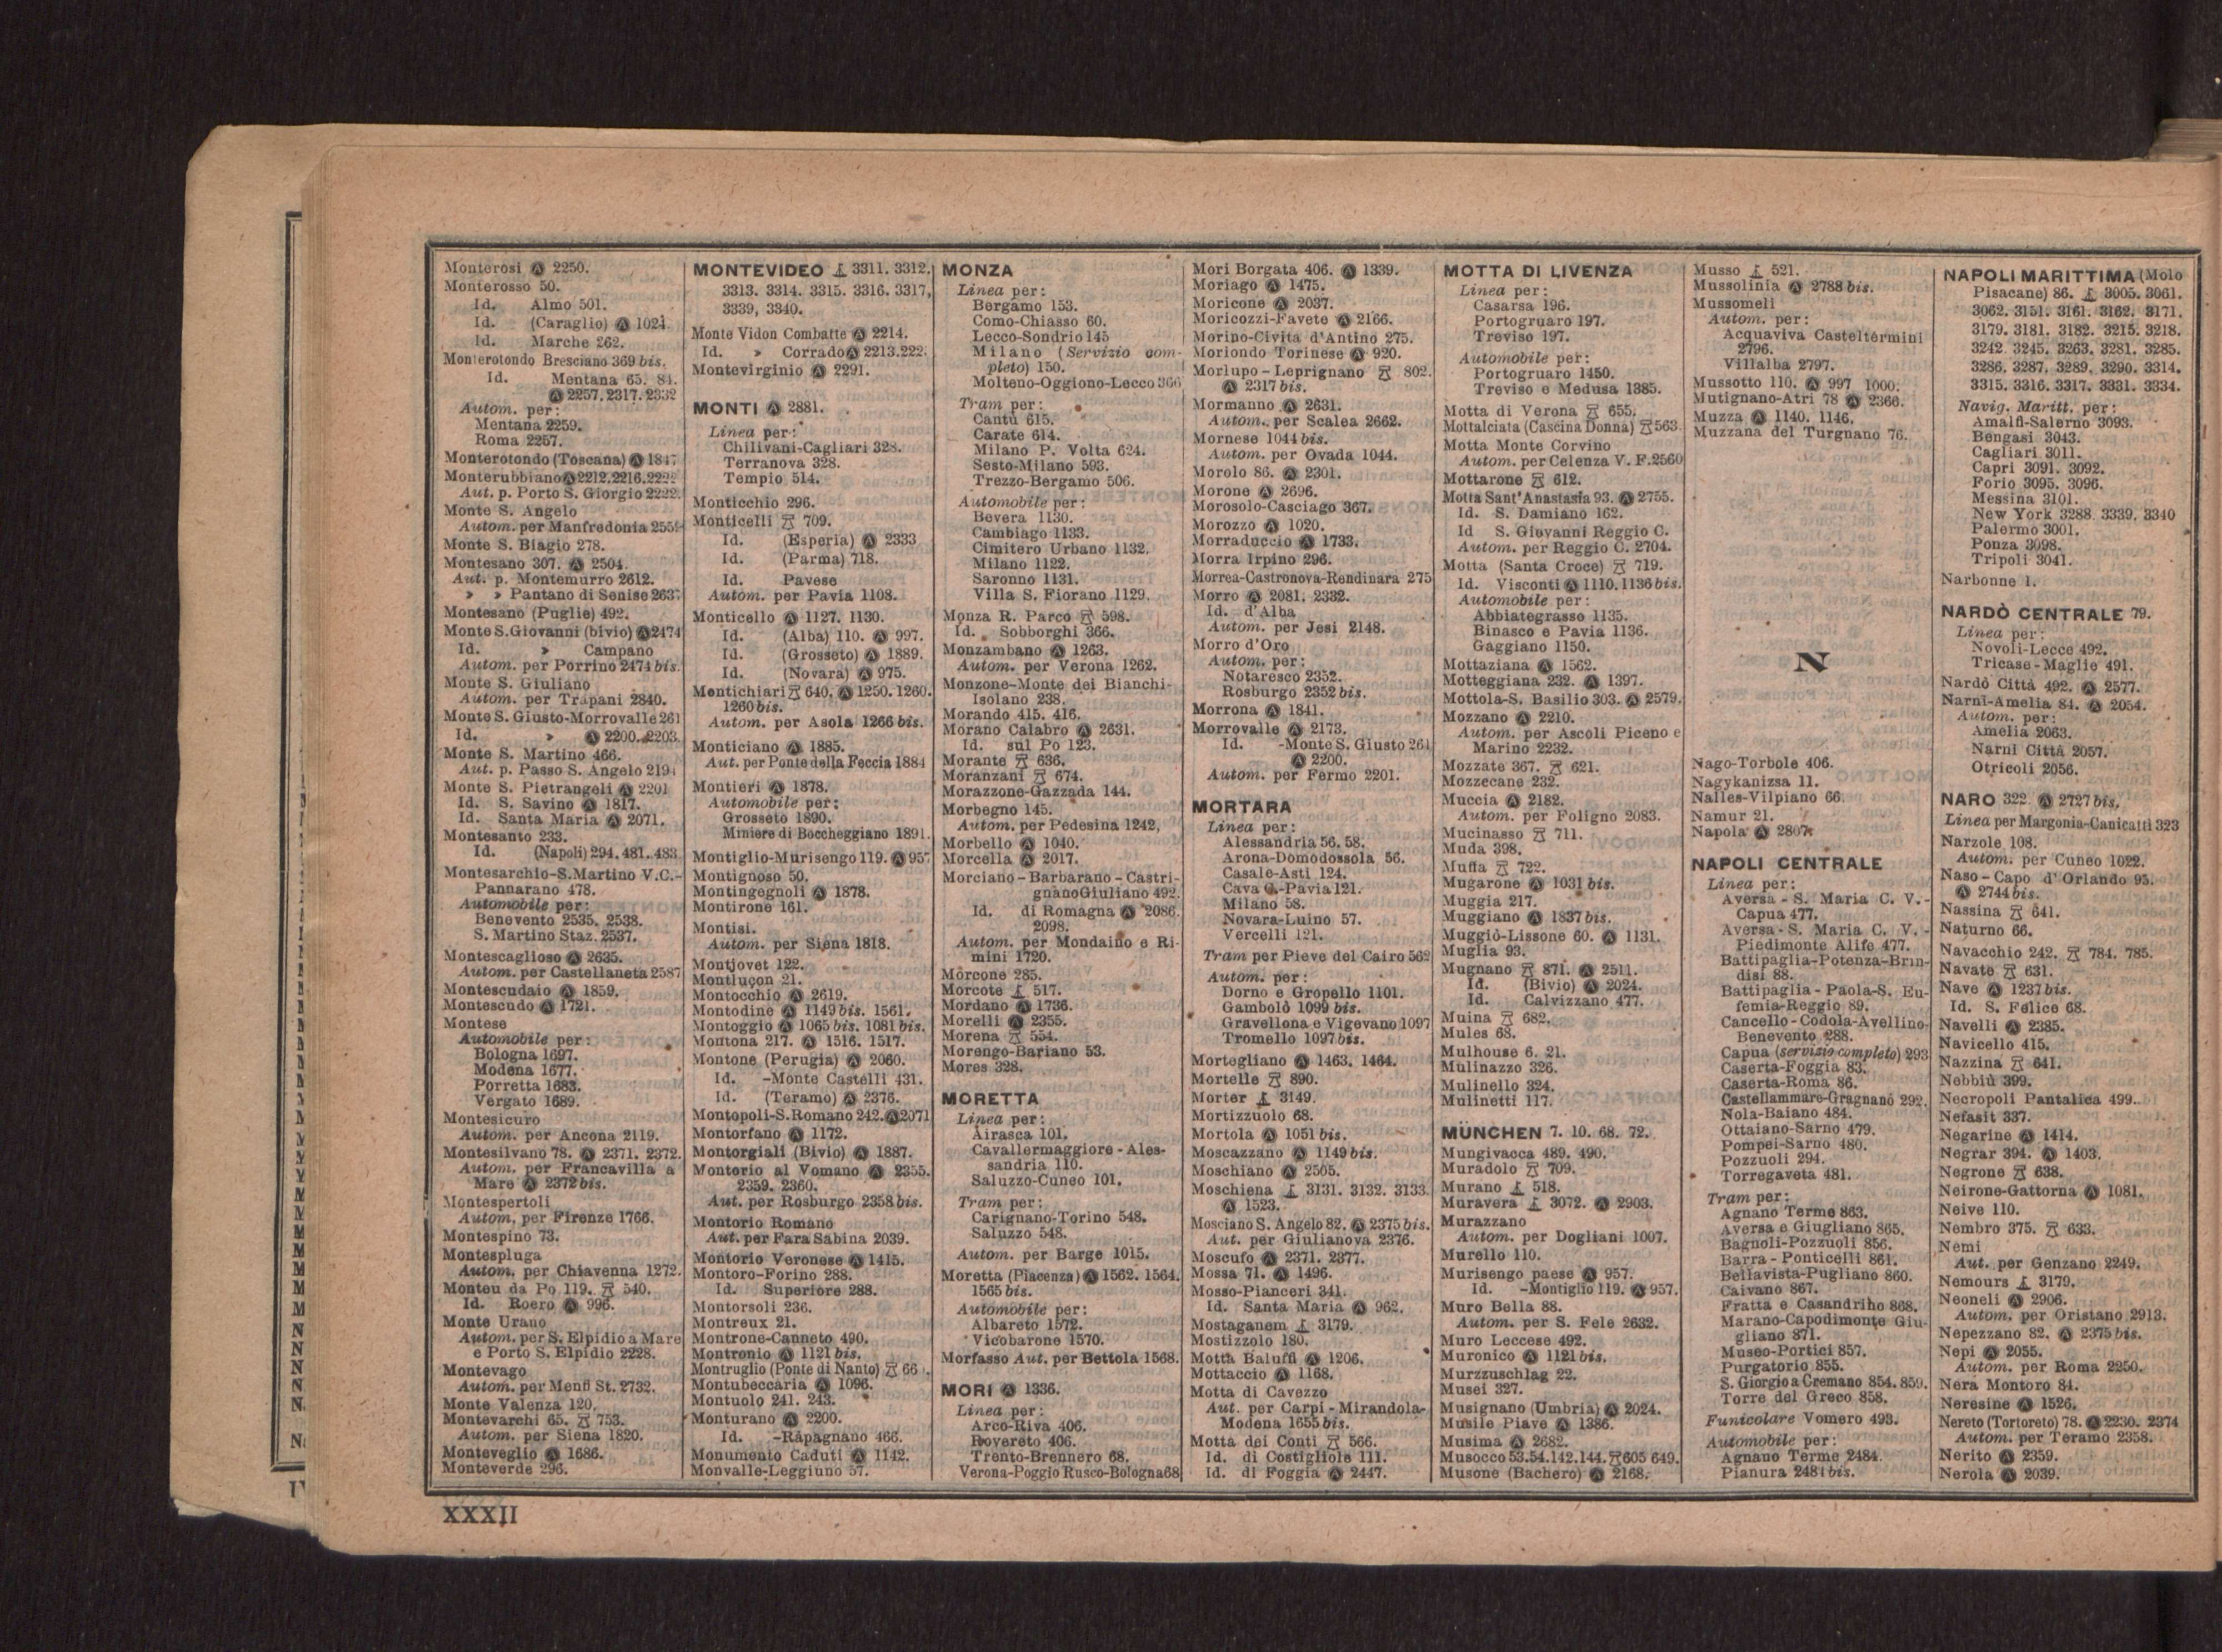 Monterosi Ⓐ 2250.
Monterosso 50.
Id. Almo 501.
Id. (Caraglio) Ⓐ 1024.
Id. Marche 262.
Monterotondo Bresciano 369 bis.
Id. Mentana 65. 84.
Ⓐ 2257. 2317. 2332
Autom. per:
Mentana 2259.
Roma 2257.
Monterotondo (Toscana) Ⓐ 1847
Monterubbiano Ⓐ 2212. 2216. 2222
Aut. p. Porto S. Giorgio 2222.
Monte S. Angelo
Autom. per Manfredonia
Monte S. Biagio 278.
Montesano 307. Ⓐ 2504.
Aut. p. Montemurro 2612.
» » Pantano di Senise
Montesano (Puglie) 492.
Monte S. Giovanni (bivio) Ⓐ 2474
Id. » Campano
Autom. per Porrino 2474 bis.
Monte S. Giuliano
Autom. per Trapani 2840.
Monte S. Giusto-Morrovalle 261
Id. » Ⓐ 2200. 2203.
Monte S. Martino 466.
Aut. p. Passo S. Angelo 2191
Monte S. Pietrangeli Ⓐ 2201
Id. S. Savino Ⓐ 1817.
Id. Santa Maria Ⓐ 2071.
Montesanto 233.
Id. (Napoli) 294. 481. 483
Montesarchio-S. Martino V.C.-
Pannarano 478.
Automobile per:
Benevento 2535. 2538.
S. Martino Staz. 2537.
Montescaglioso Ⓐ 2635.
Autom. per Castellaneta 2587
Montescudaio Ⓐ 1859.
Montescudo Ⓐ 1721.
Montese
Automobile per:
Bologna 1697.
Modena 1677.
Porretta 1683.
Vergato 1689.
Montesicuro
Autom. per Ancona 2119.
Montesilvano 78. Ⓐ 2371. 2372.
Autom. per Francavilla a
Mare Ⓐ 2372 bis.
Montespertoli
Autom. per Firenze 1766.
Montespino 73.
Montespluga
Autom. per Chiavenna 1272.
Monteu da Po 119. 540.
Id. Roero Ⓐ 996.
Monte Urano
Autom. per S. Elpidio a Mare
e Porto S. Elpidio 2228.
Montevago
Autom. per Menfi St. 2732.
Monte Valenza 120.
Montevarchi 65. 753.
Autom. per Siena 1820.
Monteveglio Ⓐ 1686.
Monteverde 296.
MONTEVIDEO 3311. 3312.
3313. 3314. 3315. 3316. 3317,
3339, 3340.
Monte Vidon Combatte Ⓐ 2214.
Id. » Corrado Ⓐ 2213.222.
Montevirginio Ⓐ 2291.
MONTI Ⓐ 2881.
Linea per:
Chilivani-Cagliari 328.
Terranova 328.
Tempio 514.
Monticchio 296.
Monticelli 709.
Id. (Esperia) Ⓐ 2333
Id. (Parma) 718.
Id. Pavese
Autom. per Pavia 1108.
Monticello Ⓐ 1127. 1130.
Id. (Alba) 110. Ⓐ 997.
Id. (Grosseto) Ⓐ 1889.
Id. (Novara) Ⓐ 975.
Montichiari 640. Ⓐ 1250. 1260.
1260 bis.
Autom. per Asola 1266 bis.
Monticiano Ⓐ 1885.
Aut. per Ponte della Feccia 1884
Montieri Ⓐ 1878.
Automobile per:
Grosseto 1890.
Miniere di Boccheggiano 1891.
Montiglio-Murisengo 119. Ⓐ 957
Montignoso 50.
Montingegnoli Ⓐ 1878.
Montirone 161.
Montisi.
Autom. per Siena 1818.
Montjovet 122.
Montluçon 21.
Montocchio Ⓐ 2619.
Montodine Ⓐ 1149 bis. 1561.
Montoggio Ⓐ 1065 bis. 1081 bis.
Montona 217. Ⓐ 1516. 1517.
Montone (Perugia) Ⓐ 2060.
Id. -Monte Castelli 431.
Id. (Teramo) Ⓐ 2376.
Montopoli-S. Romano 242. Ⓐ 2071
Montorfano Ⓐ 1172.
Montorgiali (Bivio) Ⓐ 1887.
Montorio al Vomano Ⓐ 2355.
2359. 2360.
Aut. per Rosburgo 2358 bis.
Montorio Romano
Aut. per Fara Sabina 2039.
Montorio Veronese Ⓐ 1415.
Montoro-Forino 288.
Id. Superiore 288.
Montorsoli 236.
Montreux 21.
Montrone-Canneto 490.
Montronio Ⓐ 1121 bis.
Montruglio (Ponte di Nanto)
Montubeccaria Ⓐ 1096.
Montuolo 241. 243.
Monturano Ⓐ 2200.
Id. -Rapagnano 466.
Monumento Caduti Ⓐ 1142.
Monvalle-Leggiuno 57.
MONZA
Linea per:
Bergamo 153.
Como-Chiasso 60.
Lecco-Sondrio 145
Milano (Servizio com-
pleto) 150.
Molteno-Oggiono-Lecco 366
Tram per:
Cantù 615.
Carate 614.
Milano P. Volta 624.
Sesto-Milano 593.
Trezzo-Bergamo 506.
Automobile per:
Bevera 1130.
Cambiago 1133.
Cimitero Urbano 1132.
Milano 1122.
Saronno 1131.
Villa S. Fiorano 1129.
Monza R. Parco 598.
Id. Sobborghi 366.
Monzambano Ⓐ 1263.
Autom. per Verona 1262.
Monzone-Monte dei Bianchi-
Isolano 238.
Morando 415. 416.
Morano Calabro Ⓐ 2631.
Id. sul Po 123.
Morante 636.
Moranzani 674.
Morazzone-Gazzada 144.
Morbegno 145.
Autom. per Pedesina 1242,
Morbello Ⓐ 1040.
Morcella Ⓐ 2017.
Morciano-Barbarano-Castri-
gnanoGiuliano 492.
Id. di Romagna Ⓐ 2086.
2098.
Autom. per Mondaino e Ri-
mini 1720.
Morcone 285.
Morcote 517.
Mordano Ⓐ 1736.
Morelli Ⓐ 2355.
Morena 554.
Morengo-Bariano 53.
Mores 328.
MORETTA
Linea per:
Airasca 101.
Cavallermaggiore-Ales-
sandria 110.
Saluzzo-Cuneo 101.
Tram per:
Carignano-Torino 548.
Saluzzo 548.
Autom. per Barge 1015.
Moretta (Piacenza) Ⓐ 1562. 1564.
1565 bis.
Automobile per:
Albareto 1572.
Vicobarone 1570.
Morfasso Aut. per Bettola 1568.
MORI Ⓐ 1336.
Linea per:
Arco-Riva 406.
Rovereto 406.
Trento-Brennero 68.
Verona-Poggio Rusco-Bologna 68
Mori Borgata 406. Ⓐ 1339.
Moriago Ⓐ 1475.
Moricone Ⓐ 2037.
Moricozzi-Favete Ⓐ 2166.
Moripo-Civita d'Antino 275.
Moriondo Torinese Ⓐ 920.
Morlupo-Leprignano 802.
Ⓐ 2317 bis.
Mormanno Ⓐ 2631.
Autom. per Scalea 2662.
Mornese 1044 bis.
Autom. per Ovada 1044.
Morolo 86. Ⓐ 2301.
Morone Ⓐ 2696.
Morosolo-Casciago 367.
Morozzo Ⓐ 1020.
Morraduccio Ⓐ 1733.
Morra Irpino 296.
Morrea-Castronova-Rendinara 275
Morro Ⓐ 2081. 2332.
Id. d'Alba
Autom. per Jesi 2148.
Morro d'Oro
Autom. per:
Notaresco 2352.
Rosburgo 2352 bis.
Morrona Ⓐ 1841.
Morrovalle Ⓐ 2173.
Id. -Monte S. Giusto 261
Ⓐ 2200.
Autom. per Fermo 2201.
MORTARA
Linea per:
Alessandria 56. 58.
Arona-Domodossola 56.
Casale-Asti 124.
Cava C.-Pavia 121.
Milano 58.
Novara-Luino 57.
Vercelli 121.
Tram per Pieve del Cairo 562
Autom. per:
Dorno e Gropello 1101.
Gambolò 1099 bis.
Gravellona e Vigevano 1097
Tromello 1097 bis.
Mortegliano Ⓐ 1463. 1464.
Mortelle 890.
Morter 3149.
Mortizzuolo 68.
Mortola Ⓐ 1051 bis.
Moscazzano Ⓐ 1149 bis.
Moschiano Ⓐ 2505.
Moschiena 3131. 3132. 3133.
Ⓐ 1523.
Mosciano S. Angelo 82. Ⓐ 2375 bis.
Aut. per Giulianova 2376.
Moscufo Ⓐ 2371. 2377.
Mossa 71. Ⓐ 1496.
Mosso-Pianceri 341.
Id. Santa Maria Ⓐ 962.
Mostaganem 3179.
Mostizzolo 180.
Motta Baluffi Ⓐ 1206.
Mottaccio Ⓐ 1168.
Motta di Cavezzo
Aut. per Carpi-Mirandola-
Modena 1655 bis.
Motta dei Conti 566.
Id. di Costigliole 111.
Id. di Foggia Ⓐ 2447.
MOTTA DI LIVENZA
Linea per:
Casarsa 196.
Portogruaro 197.
Treviso 197.
Automobile per:
Portogruaro 1450.
Treviso e Medusa 1385.
Motta di Verona 655.
Mottalciata (Cascina Donna) 563
Motta Monte Corvino
Autom. per Celenza V. F. 2560
Mottarone 612.
Motta Sant'Anastasia 93. Ⓐ 2755.
Id. S. Damiano 162.
Id S. Giovanni Reggio C.
Autom. per Reggio C. 2704.
Motta (Santa Croce) 719.
Id. Visconti Ⓐ 1110. 1136 bis.
Automobile per:
Abbiategrasso 1135.
Binasco e Pavia 1136.
Gaggiano 1150.
Mottaziana Ⓐ 1562.
Motteggiana 232. Ⓐ 1397.
Mottola-S. Basilio 303. Ⓐ 2579.
Mozzano Ⓐ 2210.
Autom. per Ascoli Piceno e
Marino 2232.
Mozzate 367. 621.
Mozzecane 232.
Muccia Ⓐ 2182.
Autom. per Foligno 2083.
Mucinasso 711.
Muda 398.
Muffa 722.
Mugarone Ⓐ 1031 bis.
Muggia 217.
Muggiano Ⓐ 1837 bis.
Muggiò-Lissone 60. Ⓐ 1131.
Muglia 93.
Mugnano 871. Ⓐ 2511.
Id. (Bivio) Ⓐ 2024.
Id. Calvizzano 477.
Muina 682.
Mules 68.
Mulhouse 6. 21.
Mulinazzo 326.
Mulinello 324.
Mulinetti 117.
MÜNCHEN 7. 10. 68. 72.
Mungivacca 489. 490.
Muradolo 709.
Murano 518.
Muravera 3072. Ⓐ 2903.
Murazzano
Autom. per Dogliani 1007.
Murello 110.
Murisengo paese Ⓐ 957.
Id. -Montiglio 119. Ⓐ 957.
Muro Bella 88.
Autom. per S. Fele 2632.
Muro Leccese 492.
Muronico Ⓐ 1121 bis.
Murzzuschlag 22.
Musei 327.
Musignano (Umbria) Ⓐ 2024.
Musile Piave Ⓐ 1386.
Musima Ⓐ 2682.
Musocco 53.54.142.144. 605 649.
Musone (Bachero) Ⓐ 2168.
Musso 521.
Mussolinia Ⓐ 2788 bis.
Mussomeli
Autom. per:
Acquaviva Casteltermini
2796.
Villalba 2797.
Mussotto 110. Ⓐ 997 1000.
Mutignano-Atri 78 Ⓐ 2366.
Muzza Ⓐ 1140. 1146.
Muzzana del Turgnano 76.
N
Nago-Torbole 406.
Nagykanizsa 11.
Nalles-Vilpiano 66.
Namur 21.
Napola Ⓐ 2807.
NAPOLI CENTRALE
Linea per:
Aversa-S. Maria C. V.-
Capua 477.
Aversa-S. Maria C. V.-
Piedimonte Alife 477.
Battipaglia-Potenza-Brin-
disi 88.
Battipaglia-Paola-S. Eu-
femia-Reggio 89.
Cancello-Codola-Avellino-
Benevento 288.
Capua (servizio completo) 293
Caserta-Foggia 83.
Caserta-Roma 86.
Castellammare-Gragnano 292.
Nola-Baiano 484.
Ottaiano-Sarno 479.
Pompei-Sarno 480.
Pozzuoli 294.
Torregaveta 481.
Tram per:
Agnano Terme 863.
Aversa e Giugliano 865.
Bagnoli-Pozzuoli 856.
Barra-Ponticelli 861.
Bellavista-Pugliano 860.
Caivano 867.
Fratta e Casandrino 868.
Marano-Capodimonte Giu-
gliano 871.
Museo-Portici 857.
Purgatorio 855.
S. Giorgio a Cremano 854. 859.
Torre del Greco 858.
Funicolare Vomero 493.
Automobile per:
Agnano Terme 2484.
Pianura 2484 bis.
NAPOLI MARITTIMA (Molo
Pisacane) 86. 3005. 3061.
3062. 3151. 3161. 3162. 3171.
3179. 3181. 3182. 3215. 3218.
3242. 3245. 3263. 3281. 3285.
3286. 3287. 3289. 3290. 3314.
3315. 3316. 3317. 3331. 3334.
Navig. Maritt. per:
Amalfi-Salerno 3093.
Bengasi 3043.
Cagliari 3011.
Capri 3091. 3092.
Forio 3095. 3096.
Messina 3101.
New York 3288. 3339. 3340
Palermo 3001.
Ponza 3098.
Tripoli 3041.
Narbonne 1.
NARDÒ CENTRALE 79.
Linea per:
Novoli-Lecce 492.
Tricase-Maglie 491.
Nardò Città 492. Ⓐ 2577.
Narni-Amelia 84. Ⓐ 2054.
Autom. per:
Amelia 2063.
Narni Città 2057.
Otricoli 2056.
NARO 322. Ⓐ 2727 bis.
Linea per Margonia-Canicatti 323
Narzole 108.
Autom. per Cuneo 1022.
Naso-Capo d'Orlando 95.
Ⓐ 2744 bis.
Nassina 641.
Naturno 66.
Navacchio 242. 784. 785.
Navate 631.
Nave Ⓐ 1237 bis.
Id. S. Felice 68.
Navelli Ⓐ 2385.
Navicello 415.
Nazzina 641.
Nebbiù 399.
Necropoli Pantalica 499.
Nefasit 337.
Negarine Ⓐ 1414.
Negrar 394. Ⓐ 1403.
Negrone 638.
Neirone-Gattorna Ⓐ 1081.
Neive 110.
Nembro 375. 633.
Nemi
Aut. per Genzano 2249.
Nemours 3179.
Neoneli Ⓐ 2906.
Autom. per Oristano 2913.
Nepezzano 82. Ⓐ 2375 bis.
Nepi Ⓐ 2055.
Autom. per Roma 2250.
Nera Montoro 84.
Neresine Ⓐ 1526.
Nereto (Tortoreto) 78. Ⓐ 2230. 2374
Autom. per Teramo 2358.
Nerito Ⓐ 2359.
Nerola Ⓐ 2039.
XXXII